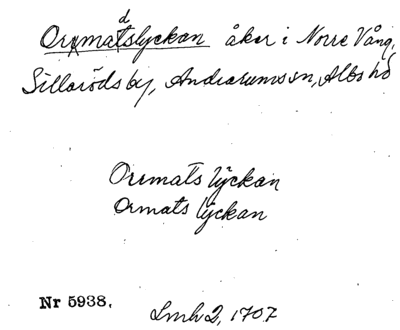 d
Orxmatslyckan åker i Norre Vång,
Sillarödsby, Andrarums sn, Albo hd
Oremats lÿckan
Ormats lÿckan
Nr 5938.
Lmh 2, 1707